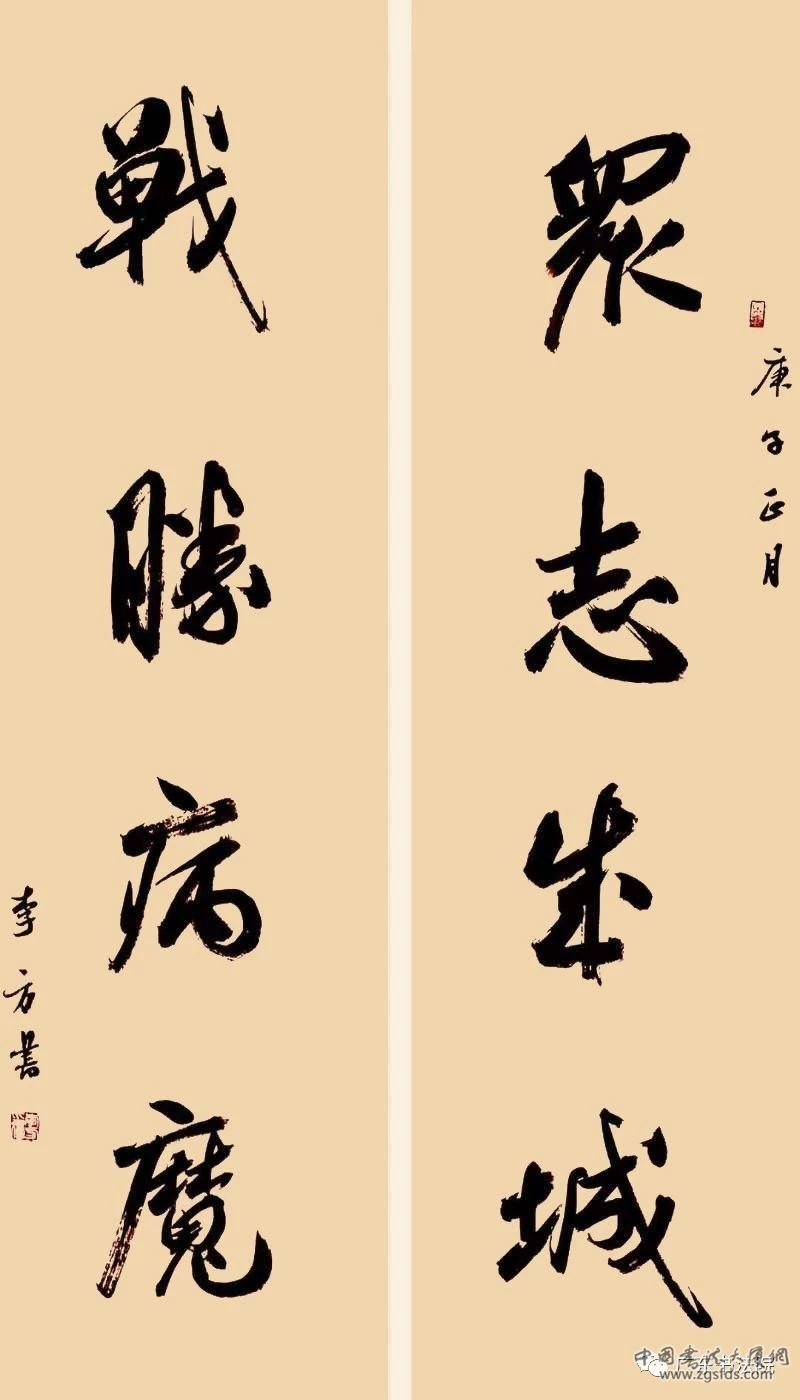 眾志成城
庚子正月
戰勝病魔
李方書
广东书法院
中國書法大厦網
www.zgsfds.com